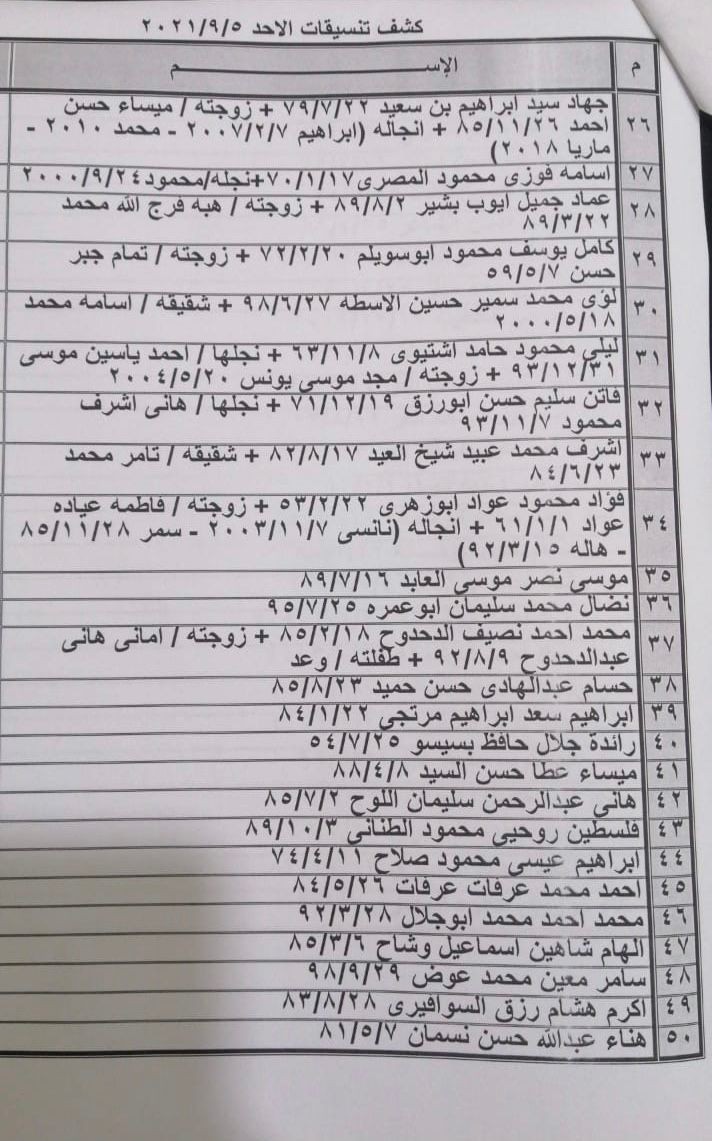 كشف تنسيقات الاحد ٢٠٢١/٩/٥
م الإســــــــــم
٢٦ جهاد سيد ابراهيم بن سعيد ٧٩/٧/٢٢ + زوجته / ميساء حسن
احمد ٨٥/١١/٢٦ + انجاله (ابراهيم ٢٠٠٧/٢/٧ - محمد ٢٠١٠ -
ماريا ٢٠١٨)
٢٧ اسامه فوزى محمود المصرى ٧٠/١/١٧+نجله/محمود٢٠٠٠/٩/٢٤
٢٨ عماد جميل ايوب بشير ٨٩/٨/٢ + زوجته / هبه فرج الله محمد
٨٩/٣/٢٢
٢٩ كامل يوسف محمود ابوسويلم ٧٢/٢/٢٠ + زوجته / تمام جبر
حسن ٥٩/٥/٧
٣٠ لؤى محمد سمير حسين الاسطه ٩٨/٦/٢٧ + شقيقه / اسامه محمد
٢٠٠٠/٥/١٨
٣١ ليلى محمود حامد اشتيوى ٦٣/١١/٨ + نجلها / احمد ياسين موسى
٩٣/١٢/٣١ + زوجته / مجد موسى يونس ٢٠٠٤/٥/٢٠
٣٢ فاتن سليم حسن ابورزق ٧١/١٢/١٩ + نجلها / هانى اشرف
محمود ٩٣/١١/٧
٣٣ اشرف محمد عبيد شيخ العيد ٨٢/٨/١٧ + شقيقه / تامر محمد
٨٤/٦/٢٣
٣٤ فؤاد محمود عواد ابوزهرى ٥٣/٢/٢٢ + زوجته / فاطمه عياده
عواد ٦١/١/١ + انجاله (نانسى ٢٠٠٣/١١/٧ - سمر ٨٥/١١/٢٨
- هاله ٩٢/٣/١٥)
٣٥ موسى نصر موسى العابد ٨٩/٧/١٦
٣٦ نضال محمد سليمان ابوعمره ٩٥/٧/٢٥
٣٧ محمد احمد نصيف الدحدوح ٨٥/٢/١٨ + زوجته / امانى هانى
عبدالدحدوح ٩٢/٨/٩ + طفلته / وعد
٣٨ حسام عبدالهادى حسن حميد ٨٥/٨/٢٣
٣٩ ابراهيم سعد ابراهيم مرتجى ٨٤/١/٢٢
٤٠ رائدة جلال حافظ بسيسو ٥٤/٧/٢٥
٤١ ميساء عطا حسن السيد ٨٨/٤/٨
٤٢ هانى عبدالرحمن سليمان اللوح ٨٥/٧/٢
٤٣ فلسطين روحيى محمود الطنانى ٨٩/١٠/٣
٤٤ ابراهيم عيسى محمود صلاح ٧٤/٤/١١
٤٥ احمد محمد عرفات عرفات ٨٤/٥/٢٦
٤٦ محمد احمد محمد ابوجلال ٩٢/٣/٢٨
٤٧ الهام شاهين اسماعيل وشاح ٨٥/٣/٦
٤٨ سامر معين محمد عوض ٩٨/٩/٢٩
٤٩ اكرم هشام رزق السوافيرى ٨٣/٨/٢٨
٥٠ هناء عبدالله حسن نسمان ٨١/٥/٧